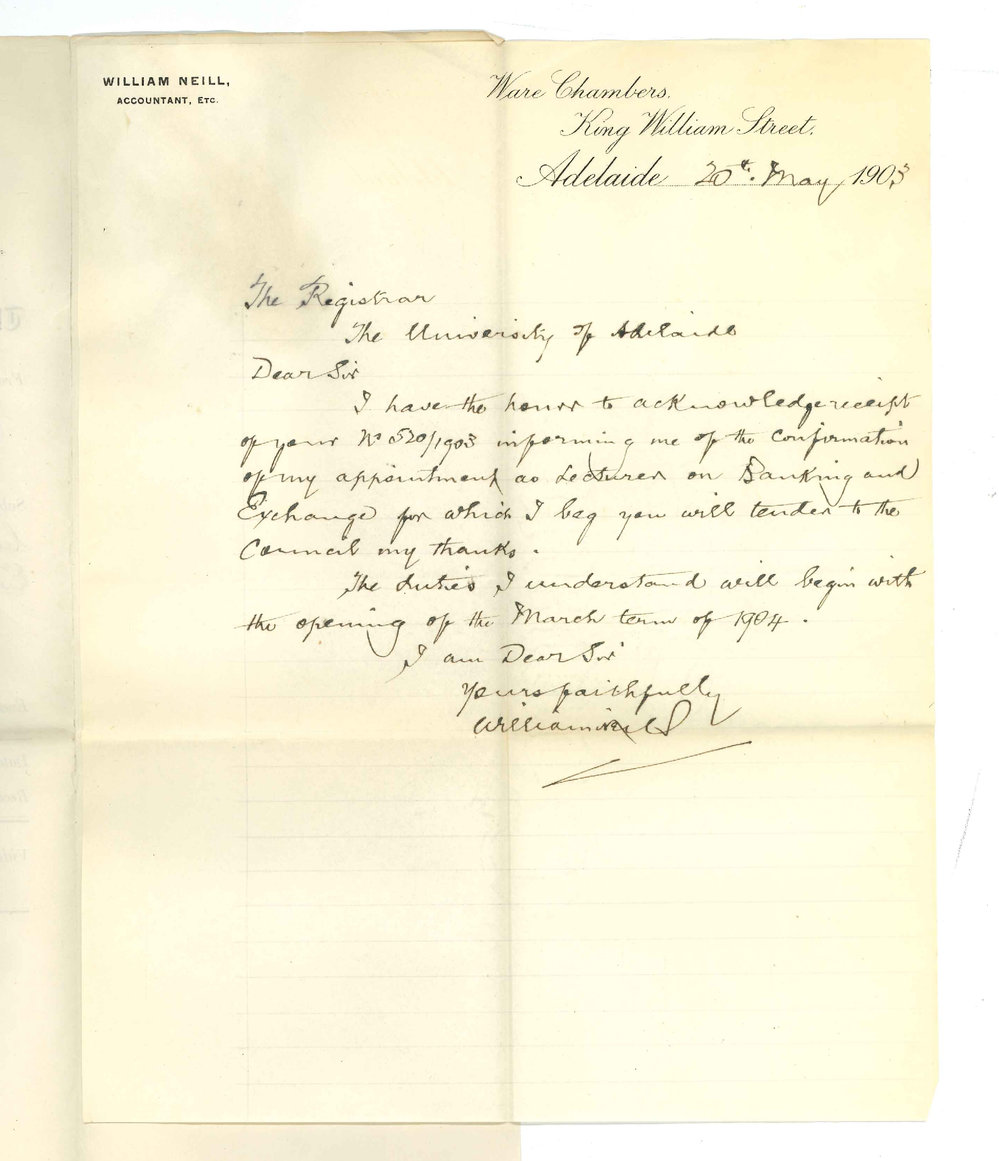 WILLIAM NEILL,
ACCOUNTANT, ETC.
Ware Chambers.
King William Street.
Adelaide 20th. May 1903
The Registrar
The University of Adelaide
Dear Sir
I have the honor to acknowledge receipt
of your No 520/1903 informing me of the confirmation
of my appointment as Lecturer on Banking and
Exchange for which I beg you will tender to the
Council my thanks.
The duties I understand will begin with
the opening of the March term of 1904.
I am Dear Sir
Yours faithfully
William Neill